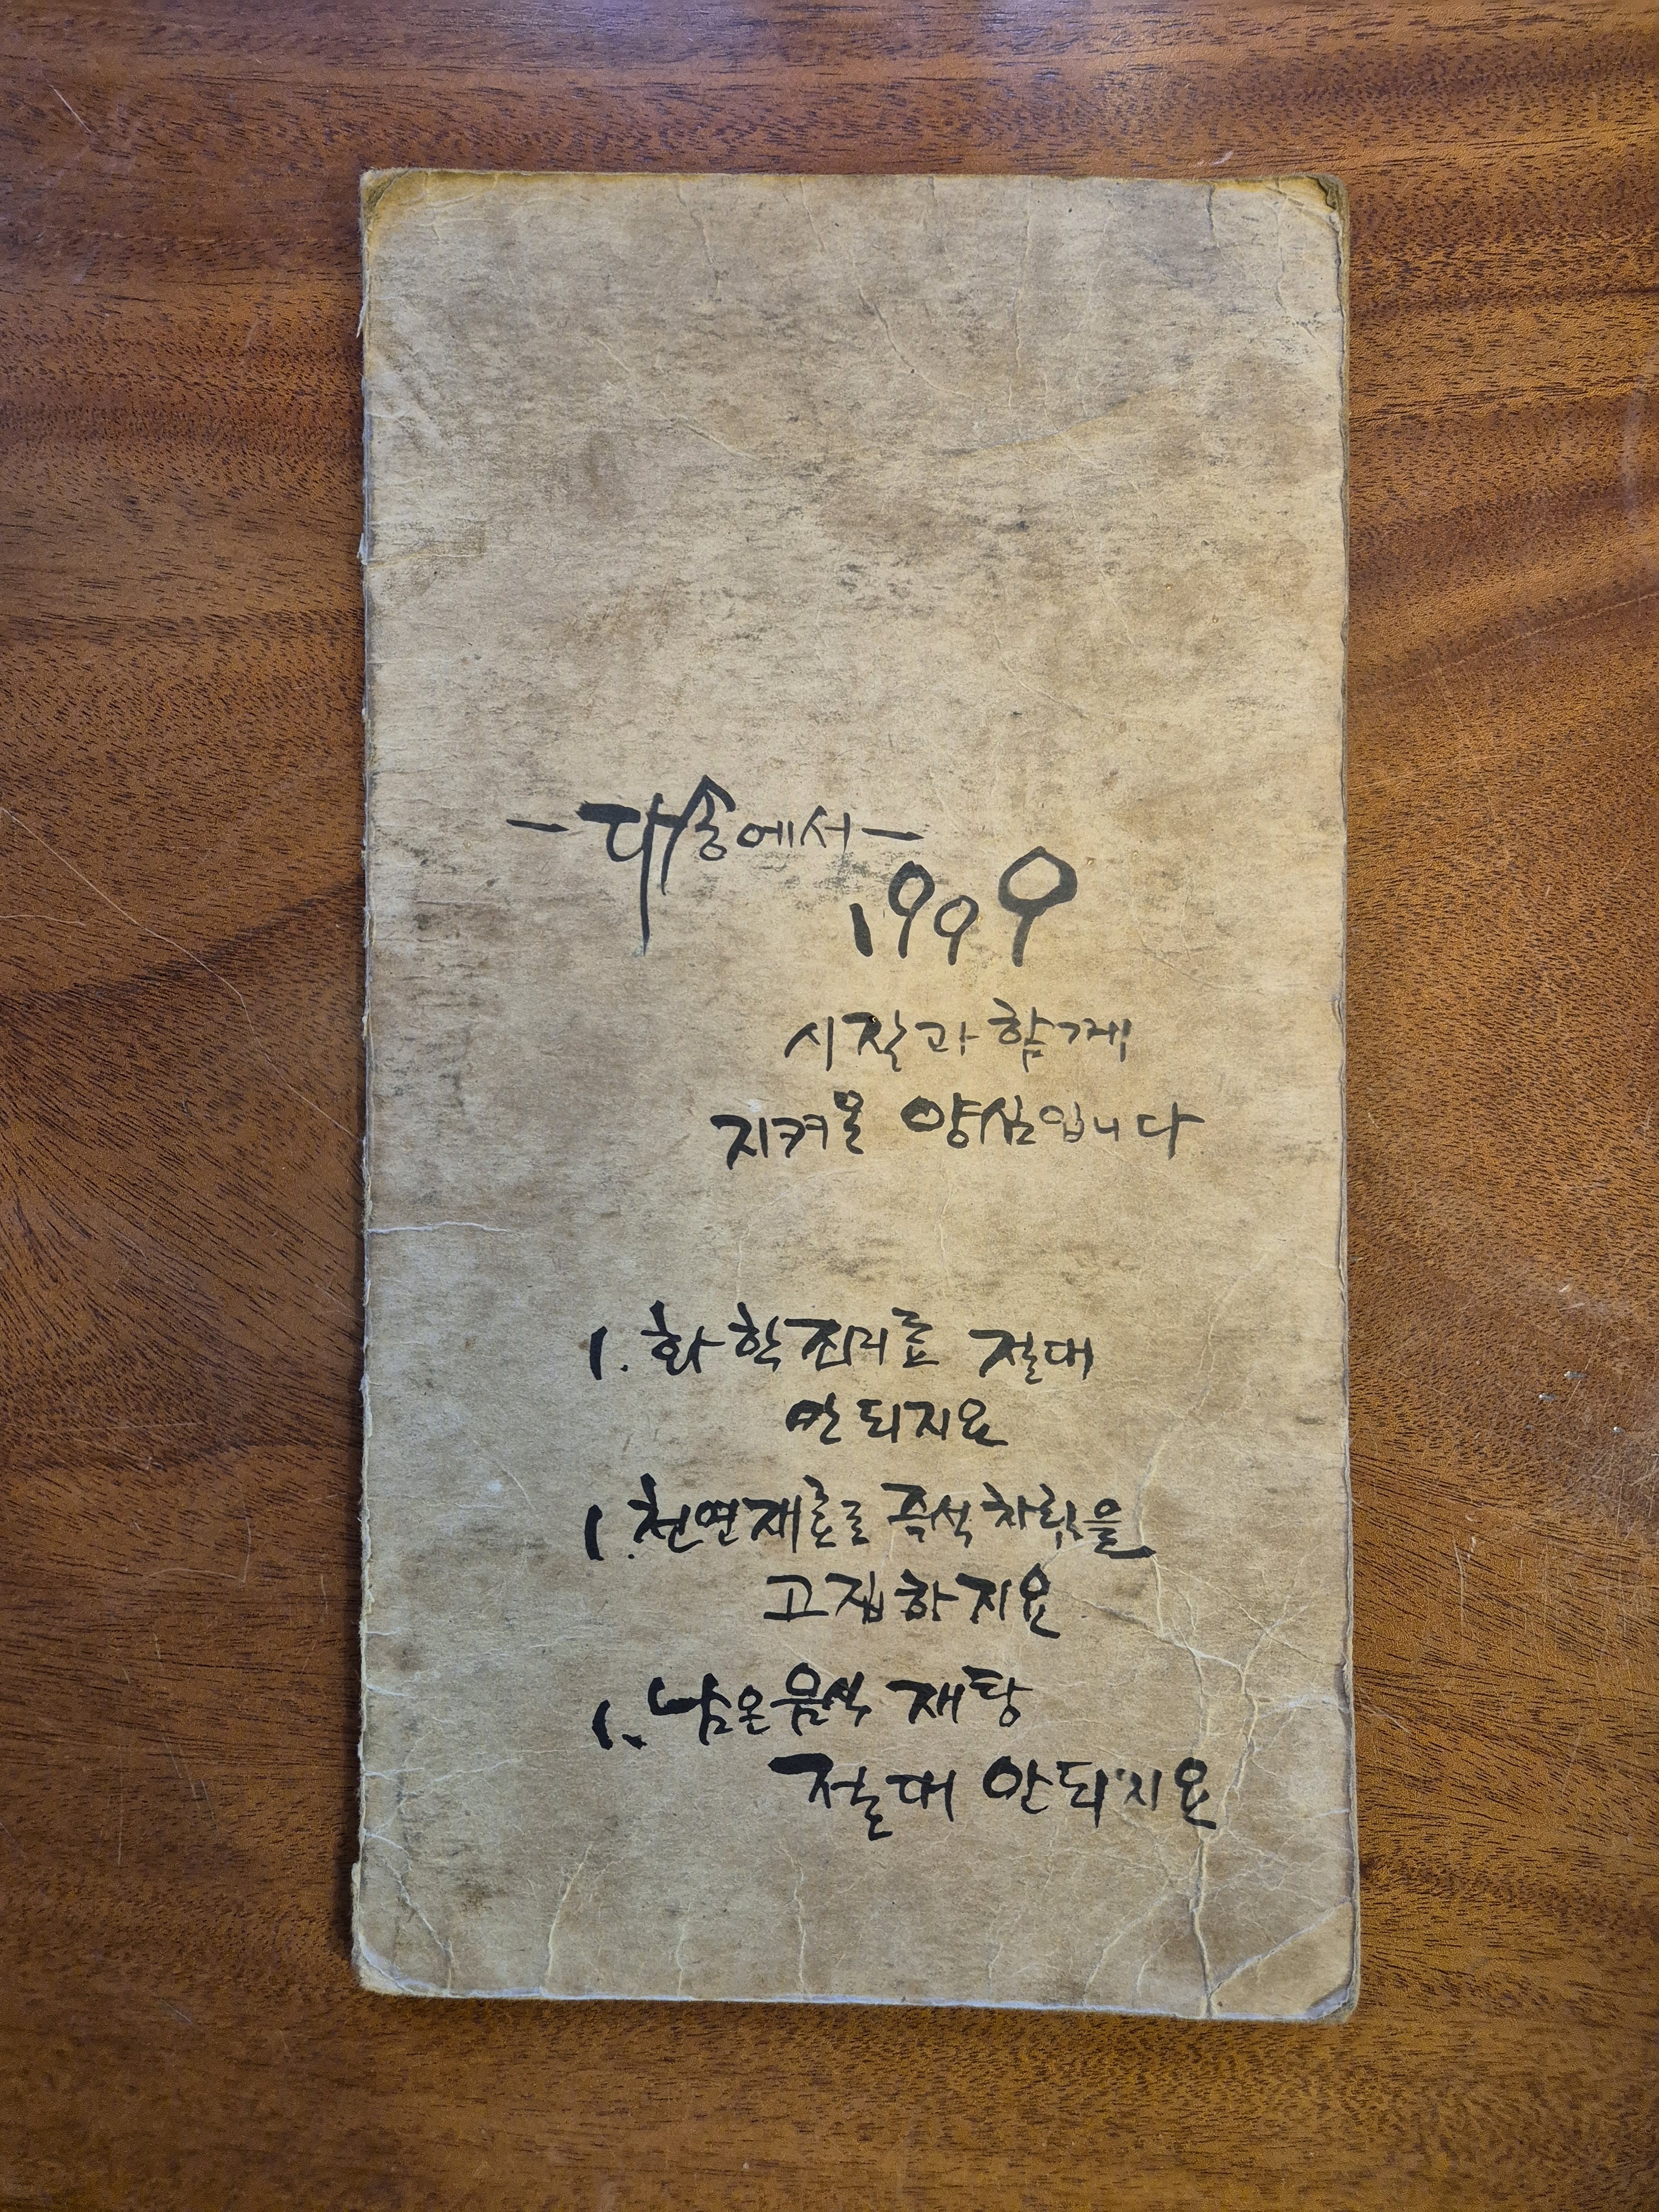 - 대숲에서 -
1999
시작과 함께
지켜온 양심입니다
1. 화학조미료 절대
안되지요
1. 천연재료로 즉석차림을
고집하지요
1. 남은음식 재탕
절대 안되지요